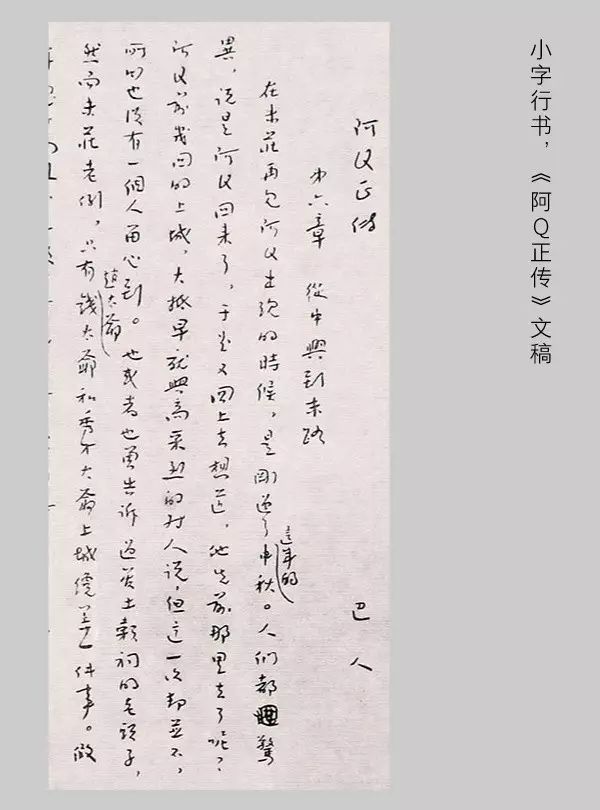 小字行书，《阿Q正传》文稿
阿Q正傳　　巴人
第六章　從中興到末路
在未莊再見阿Q出現的時候，是剛過了這年的中秋。人們都驚
異，說是阿Q回來了，于是又回上去想道，他先前那里去了呢？
阿Q前幾回的上城，大抵早就興高采烈的對人說，但這一次却並不，
所以也沒有一個人留心到。他或者也曾告訴過管土穀祠的老頭子，
然而未莊老例，只有趙太爺錢太爺和秀才大爺上城纔算一件事。假